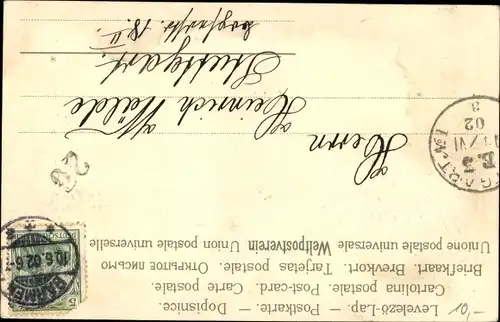 Levelező-Lap. — Postkarte. — Dopisnice.
Cartolina postale. Post-card. Carte postale.
Briefkaart. Brevkort. Tarjetas postale. Открытое письмо
Unione postale universale Weltpostverein Union postale universelle
BARMEN
10.6.02.6-7
5
E.3
02
Herrn
Heinrich Wälde
Stuttgart.
18. II.
28
10,-